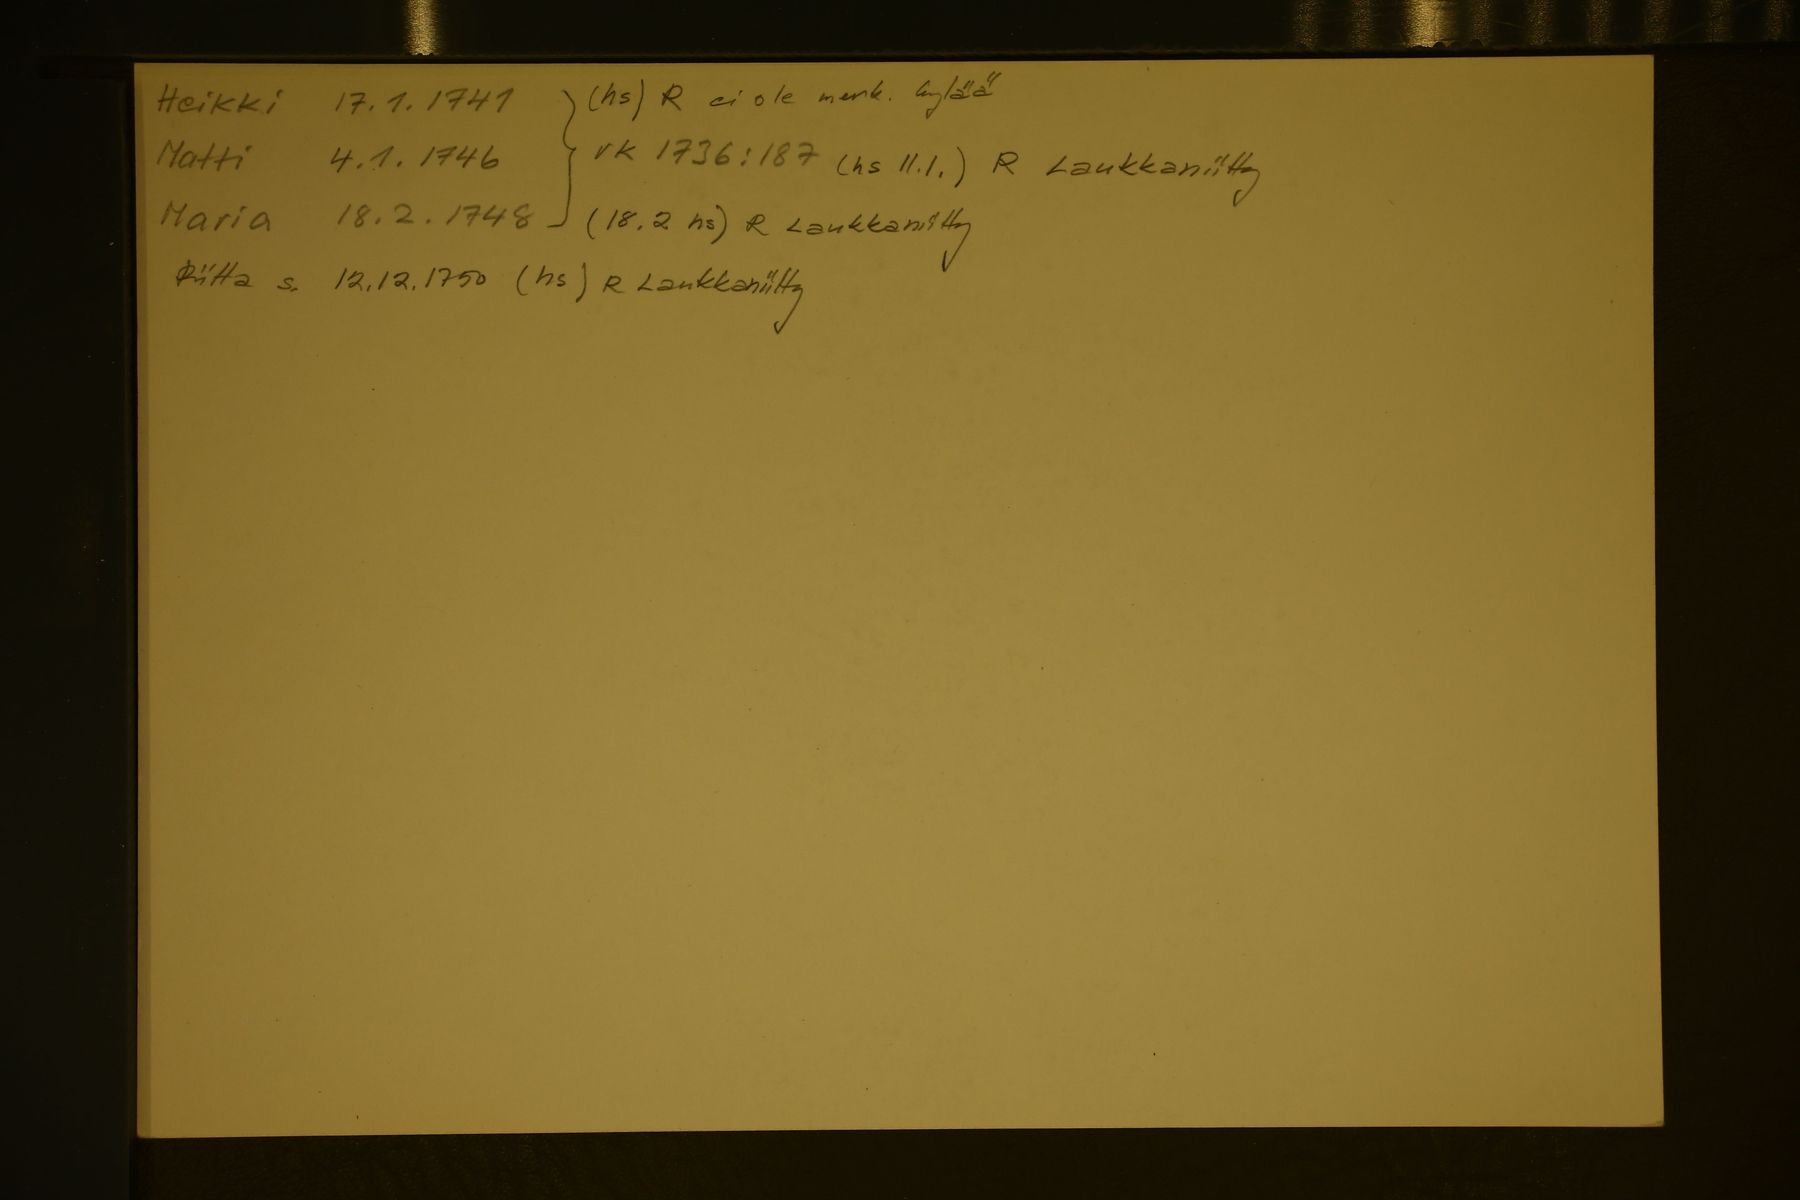 Heikki 17.1.1741 } (hs) R ei ole merk. kylää
Matti 4.1.1746 } rk 1736:187 (hs 11.1.) R Laukkaniitty
Maria 18.2.1748 } (18.2 hs) R Laukkaniitty
Riitta s. 12.12.1750 (hs) R Laukkaniitty